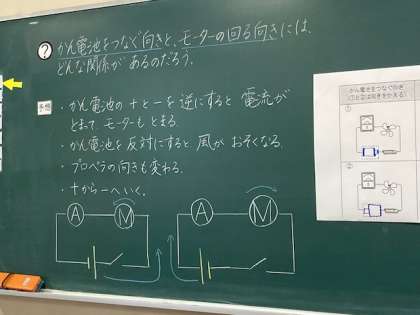 ? かん電池をつなぐ向きと、モーターの回る向きには、
どんな関係があるのだろう。
予想
・かん電池の+と-を逆にすると 電流が
とまって、モーターもとまる。
・かん電池を反対にすると 風が おそくなる。
・プロペラの向きも変わる。
・+から-へいく。
A M A M
かん電池をつなぐ向き
①
②